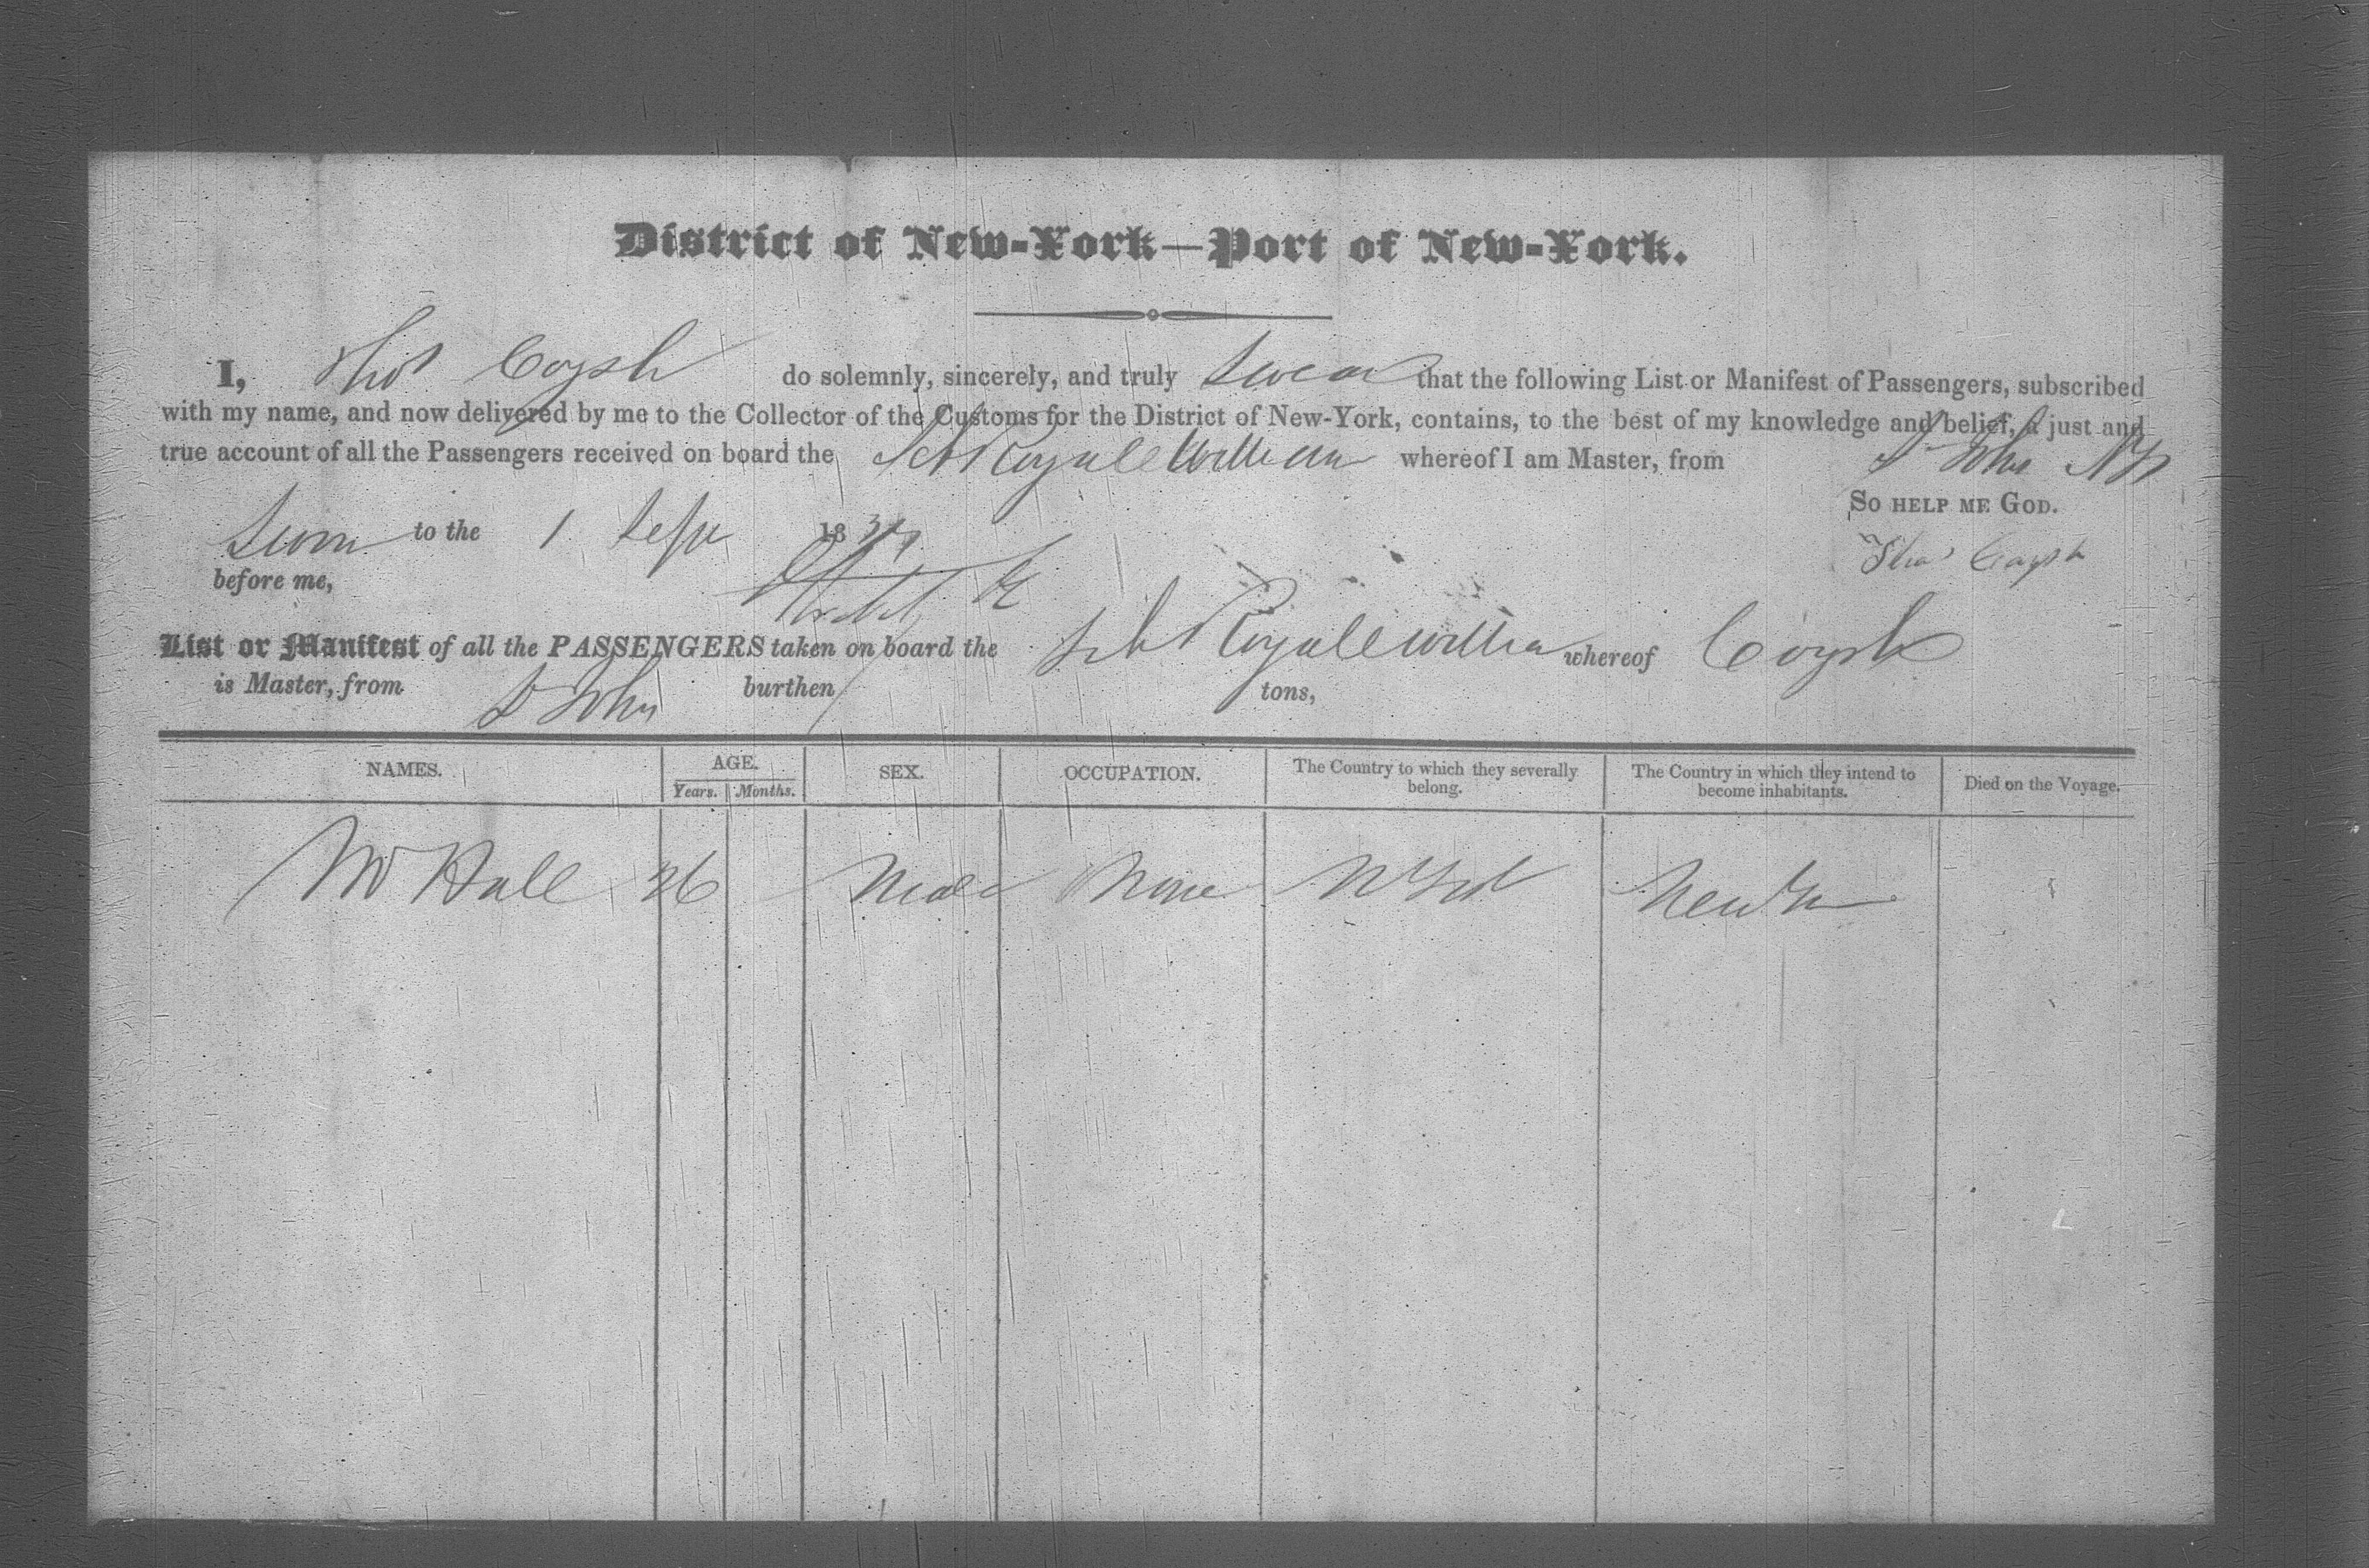 District of New-York—Port of New-York.
I, Thos Coysh do solemnly, sincerely, and truly swear that the following List or Manifest of Passengers, subscribed
with my name, and now delivered by me to the Collector of the Customs for the District of New-York, contains, to the best of my knowledge and belief, a just and
true account of all the Passengers received on board the Sch Royal William whereof I am Master, from St Johns
So help me God.
Sworn to the 1 Sepr 18
before me,
Thos Coysh
List or Manifest of all the PASSENGERS taken on board the Sch Royal William whereof Coysh
is Master, from St Johns burthen tons,
NAMES. AGE. SEX. OCCUPATION. The Country to which they severally belong. The Country in which they intend to become inhabitants. Died on the Voyage.
Years. Months.
Mr Hall 26 Male None